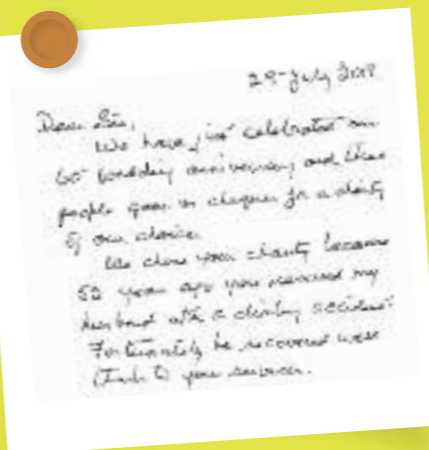 29 July 2018
Dear Sir,
We have just celebrated our
60 wedding anniversary and
people gave us cheques for a charity
of our choice.
We chose your charity because
53 years ago you rescued my
husband after a climbing accident.
Fortunately he recovered
thanks to your